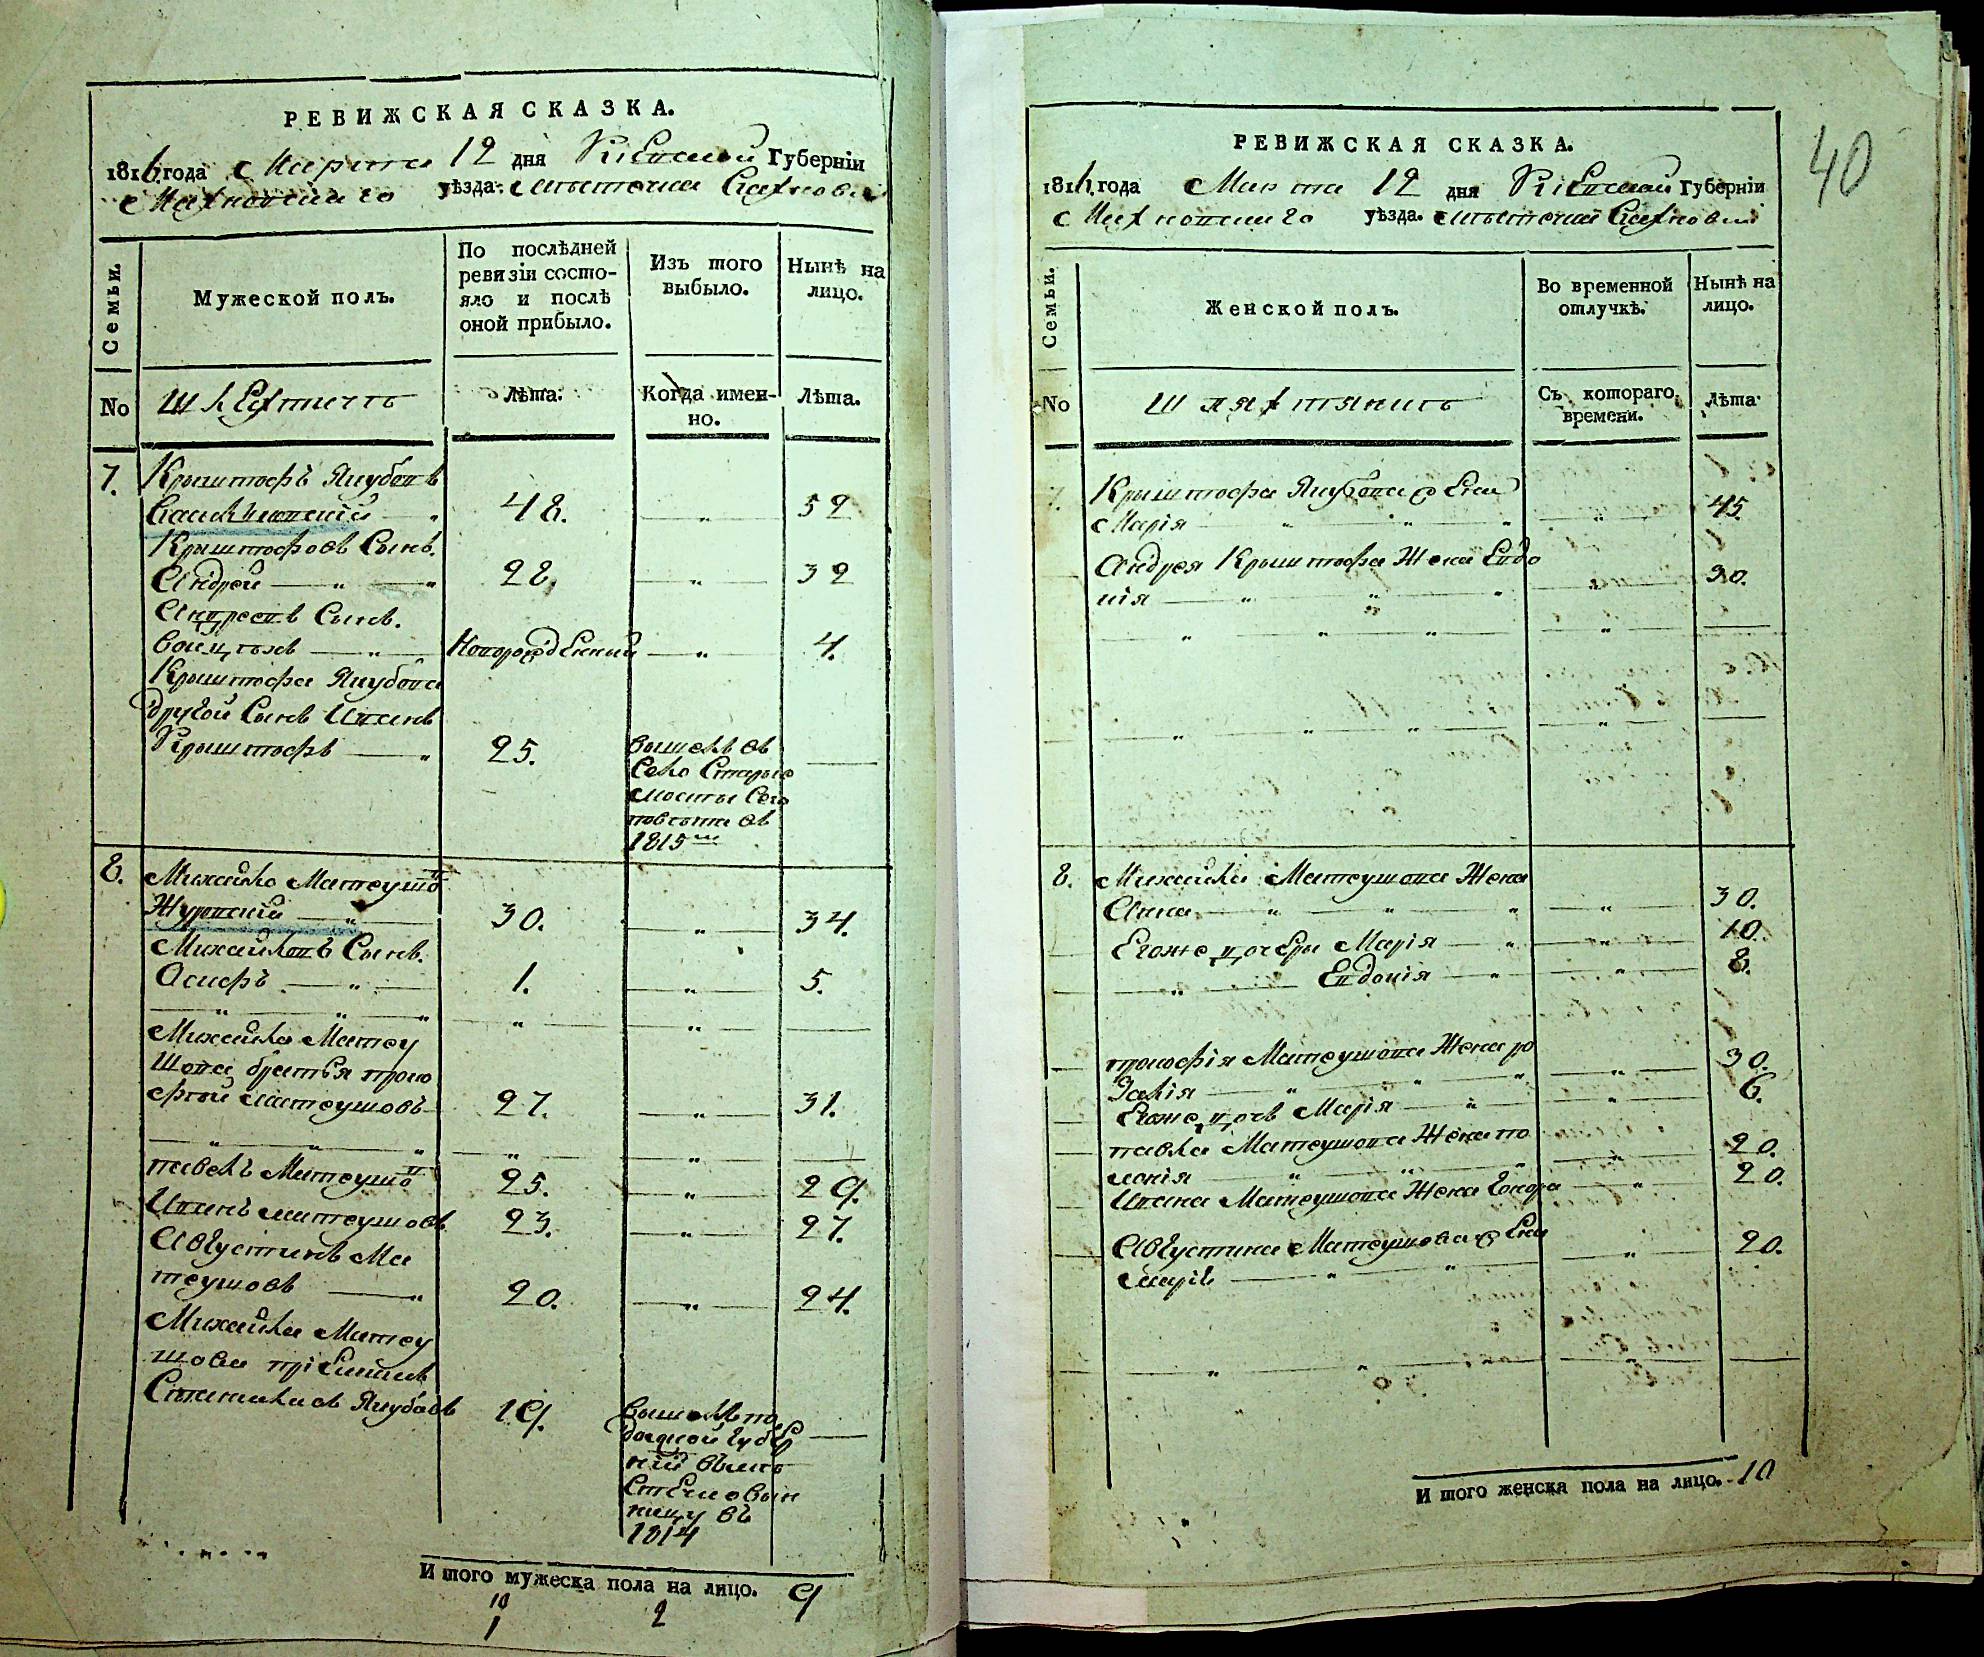 РЕВИЖСКАЯ СКАЗКА.
1816 года Марта 12 дня Киевской Губерніи
Махновскаго уѣзда. мѣстечка Сахновки
Семьи.
Мужеской полъ.
По послѣдней ревизіи состо-
яло и послѣ
оной прибыло.
Изъ того
выбыло.
Нынѣ на
лицо.
No
Шляхтичъ
Лѣта.
Когда имен-
но.
Лѣта.
7. Крыштофъ Якубовъ
48. „ 52
Крыштофовъ Сынъ.
Андрей — „ — „ 28. „ 32
Андреевъ Сынъ.
Войцѣхъ — „ Новорожденний — „ — 4.
Крыштофа Якубова
другой Сынъ Иванъ
Крыштофъ — „ 25.
вышелъ въ
Село Старые
Мосты Сего
повѣта въ
1815
8. Михайло Матеушовъ
Журовскій — „ 30. „ 34.
Михайловъ Сынъ.
Осифъ — „ — 1. „ 5.
Михайла Матеу
шова братья проко
фтой Матеушовъ 27. „ 31.
павелъ Матеушовъ 25. „ 29.
Иванъ Матеушовъ 23. „ 27.
Августинъ Ма
теушовъ — „ 20. „ 24.
Михайла Матеу
шова
Станиславъ Якубовъ 19.
вышелъ по
Губер
ній
въ
1814
И того мужеска пола на лицо. 9
10
1 2
40
РЕВИЖСКАЯ СКАЗКА.
1816 года Марта 12 дня Киевской Губерніи
Махновскаго уѣзда. мѣстечка Сахновки
Семьи.
Женской полъ.
Во временной
отлучкѣ.
Нынѣ на
лицо.
No
Съ котораго
времени.
Лѣта
7. Крыштофа Якубова жена
Марія — „ „ „ „ 45.
Андрея Крыштофа Жена Евдо
кія — „ „ „ „ 30.
8. Михайла Матеушова Жена
Анна — „ „ „ „ 30.
Егоже дочери Марія — „ „ 10.
„ Евдокія — „ „ 8.
прокофія Матеушова Жена ро
залія — „ „ „ „ 30.
Егоже дочь Марія — „ „ 6.
павла Матеушова Жена по
лонія — „ „ „ „ 20.
Ивана Матеушова Жена „ 20.
Августина Матеушова жена
Марія — „ „ „ 20.
И того женска пола на лицо. 10